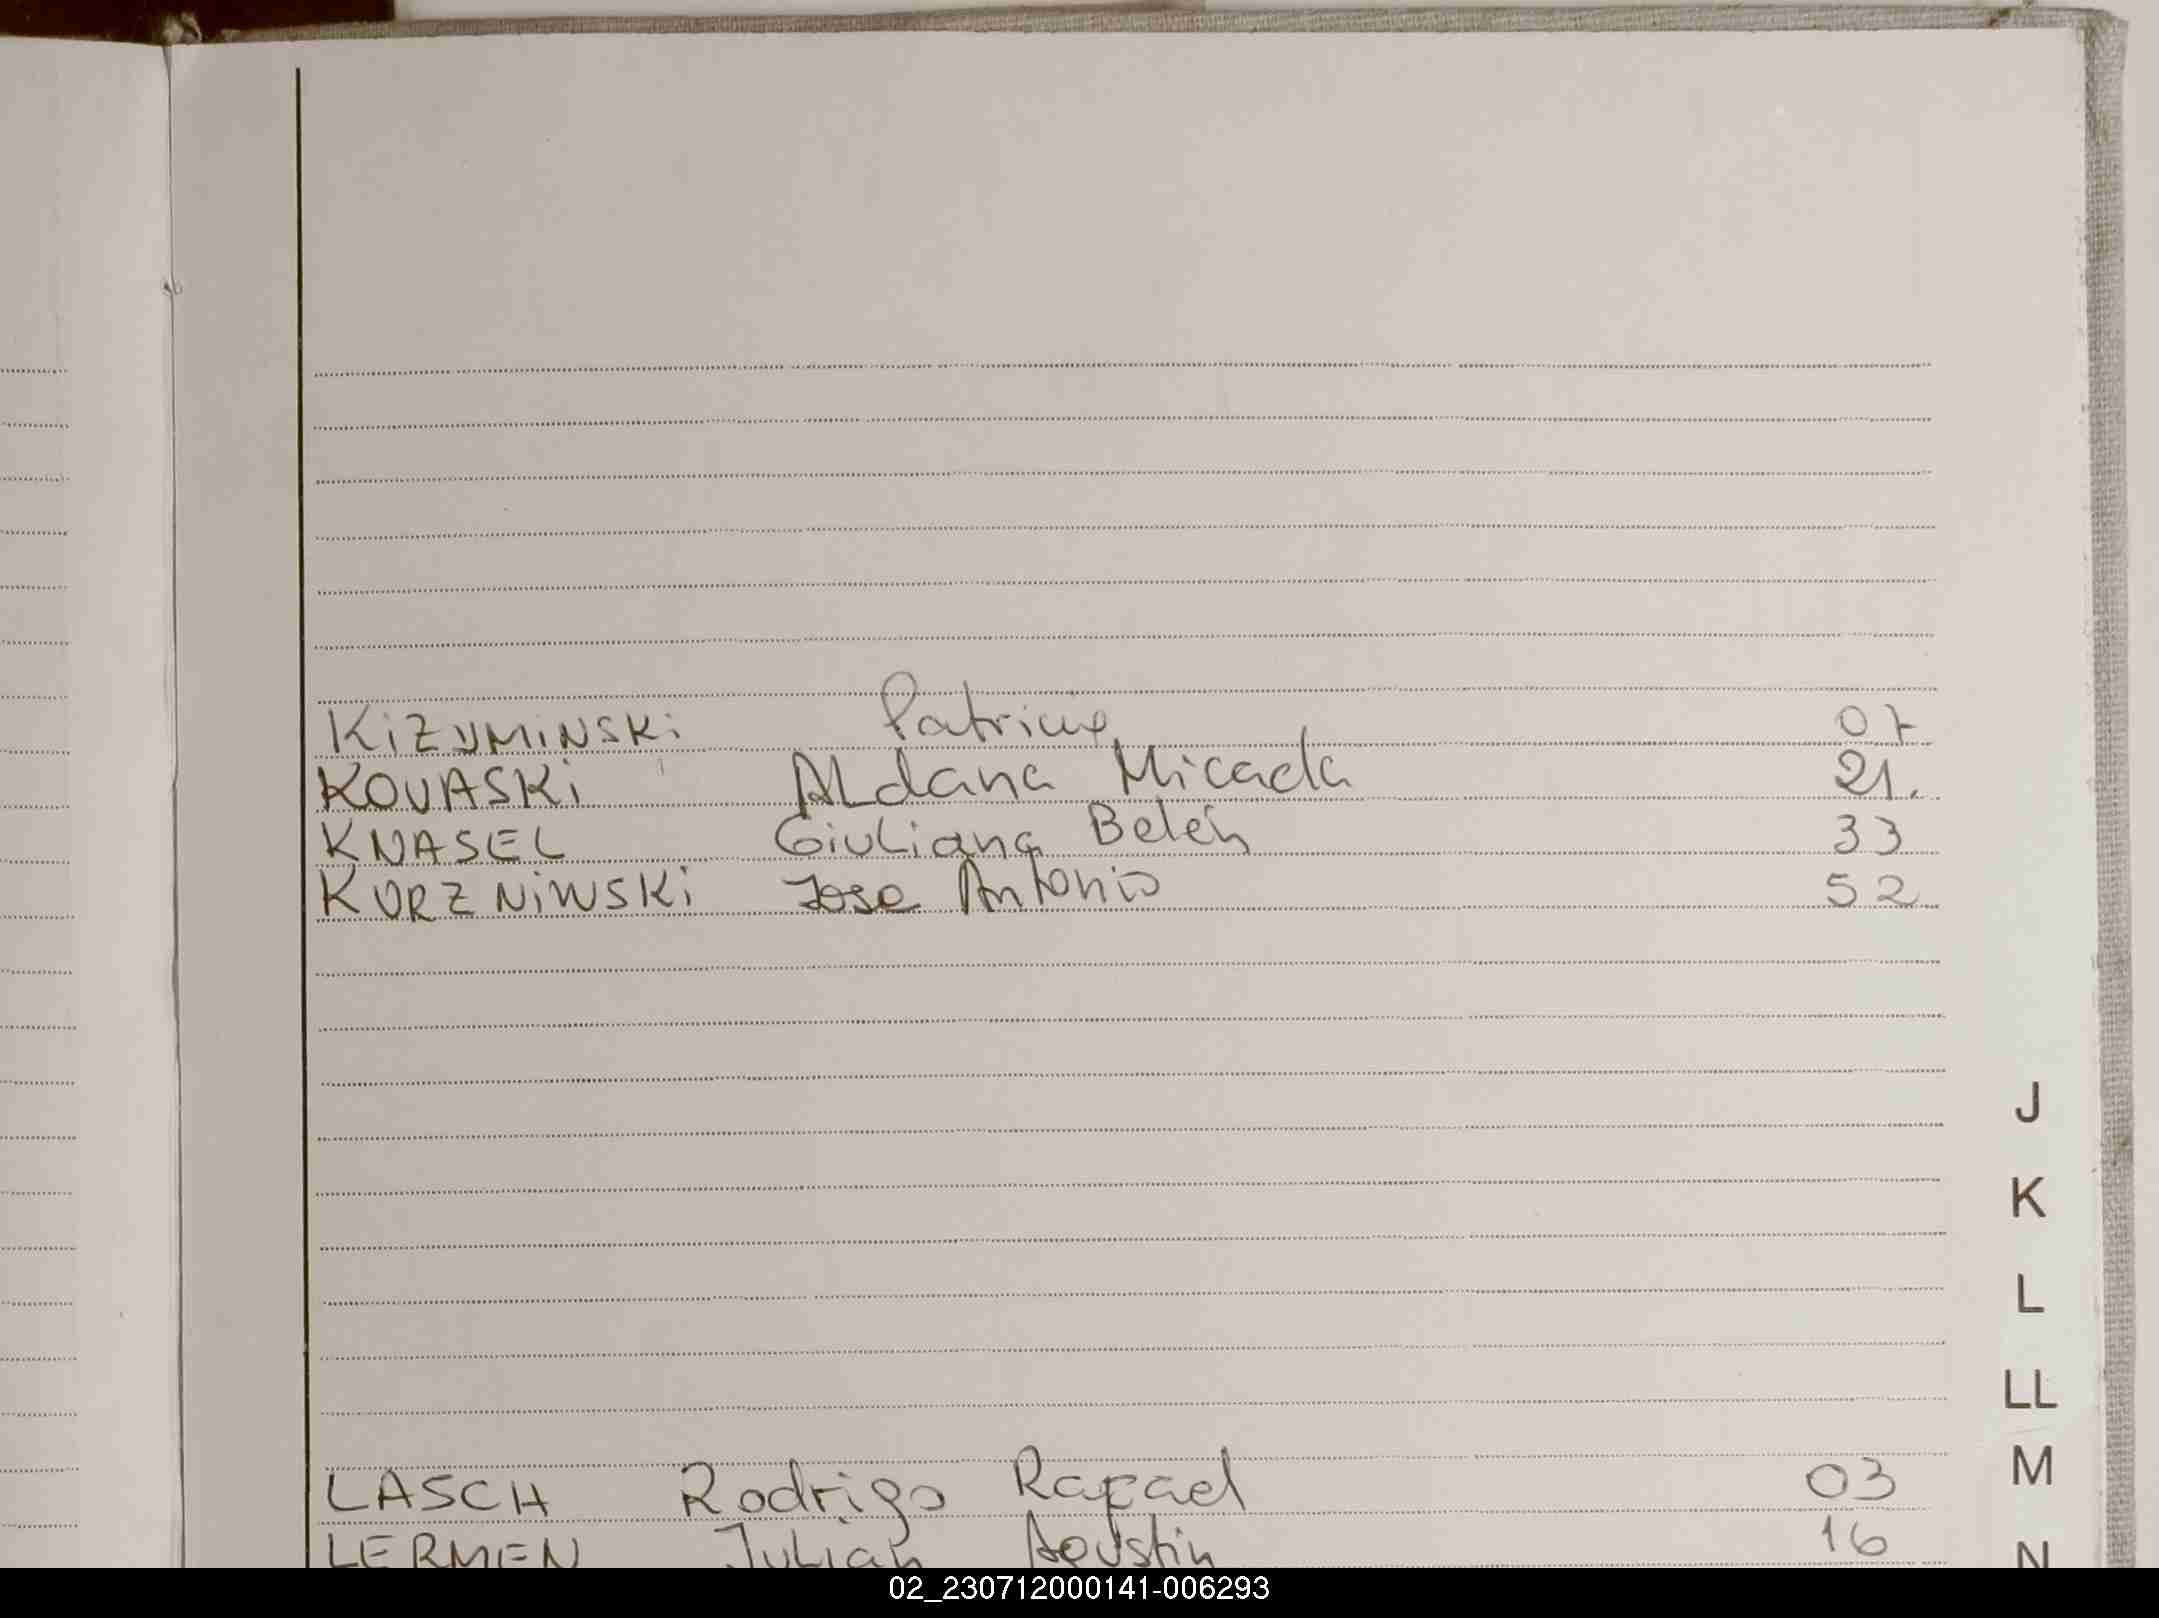 KiZYMiNSKi Patricio 07
KOVASKi ALdana Micaela 21.
KNASEL GiuLiana Belén 33
KURZNiWSKi Jose Antonio 52
J
K
L
LL
LASCH Rodrigo Rafael 03
M
LERMEN JuLian Agustin 16
N
02_230712000141-006293